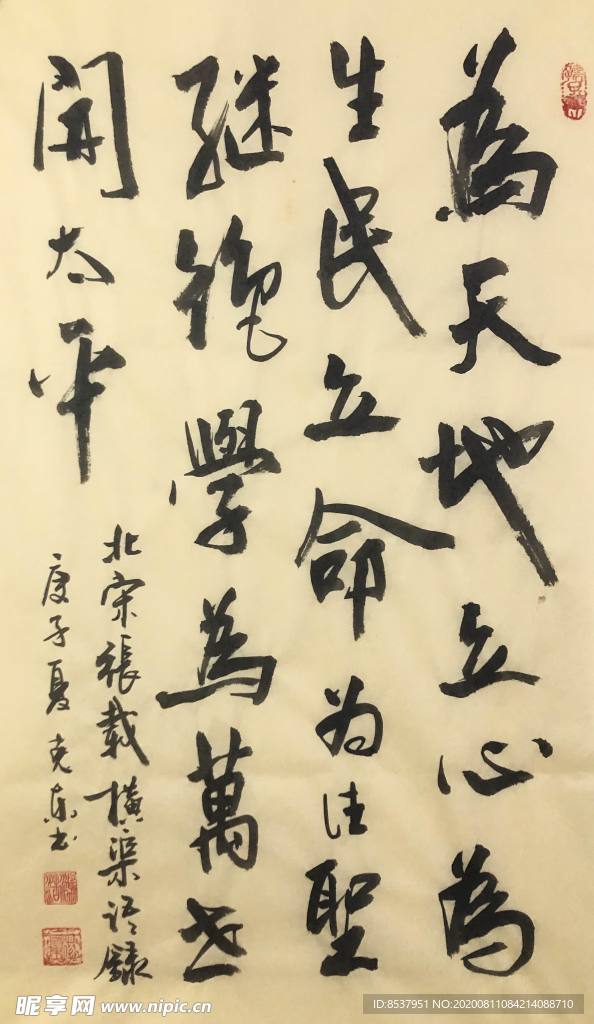 為天地立心為
生民立命为往聖
继絶學為萬世
開太平
北宋張载横渠语録
庚子夏克东书
昵享网 www.nipic.cn
ID:8537951 NO:20200811084214088710